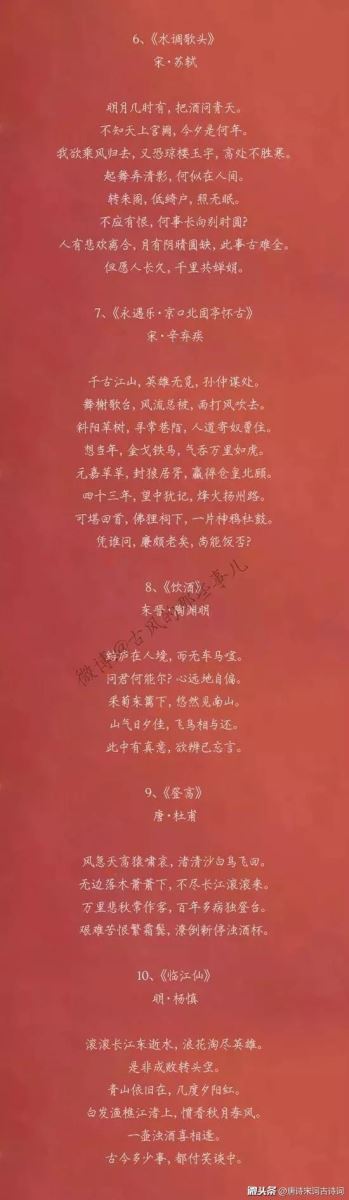 6、《水调歌头》
宋·苏轼
明月几时有，把酒问青天。
不知天上宫阙，今夕是何年。
我欲乘风归去，又恐琼楼玉宇，高处不胜寒。
起舞弄清影，何似在人间。
转朱阁，低绮户，照无眠。
不应有恨，何事长向别时圆？
人有悲欢离合，月有阴晴圆缺，此事古难全。
但愿人长久，千里共婵娟。
7、《永遇乐·京口北固亭怀古》
宋·辛弃疾
千古江山，英雄无觅，孙仲谋处。
舞榭歌台，风流总被，雨打风吹去。
斜阳草树，寻常巷陌，人道寄奴曾住。
想当年，金戈铁马，气吞万里如虎。
元嘉草草，封狼居胥，赢得仓皇北顾。
四十三年，望中犹记，烽火扬州路。
可堪回首，佛狸祠下，一片神鸦社鼓。
凭谁问，廉颇老矣，尚能饭否？
8、《饮酒》
东晋·陶渊明
结庐在人境，而无车马喧。
问君何能尔？心远地自偏。
采菊东篱下，悠然见南山。
山气日夕佳，飞鸟相与还。
此中有真意，欲辨已忘言。
微博@古风的那些事儿
9、《登高》
唐·杜甫
风急天高猿啸哀，渚清沙白鸟飞回。
无边落木萧萧下，不尽长江滚滚来。
万里悲秋常作客，百年多病独登台。
艰难苦恨繁霜鬓，潦倒新停浊酒杯。
10、《临江仙》
明·杨慎
滚滚长江东逝水，浪花淘尽英雄。
是非成败转头空。
青山依旧在，几度夕阳红。
白发渔樵江渚上，惯看秋月春风。
一壶浊酒喜相逢。
古今多少事，都付笑谈中。
头条@唐诗宋词古诗词